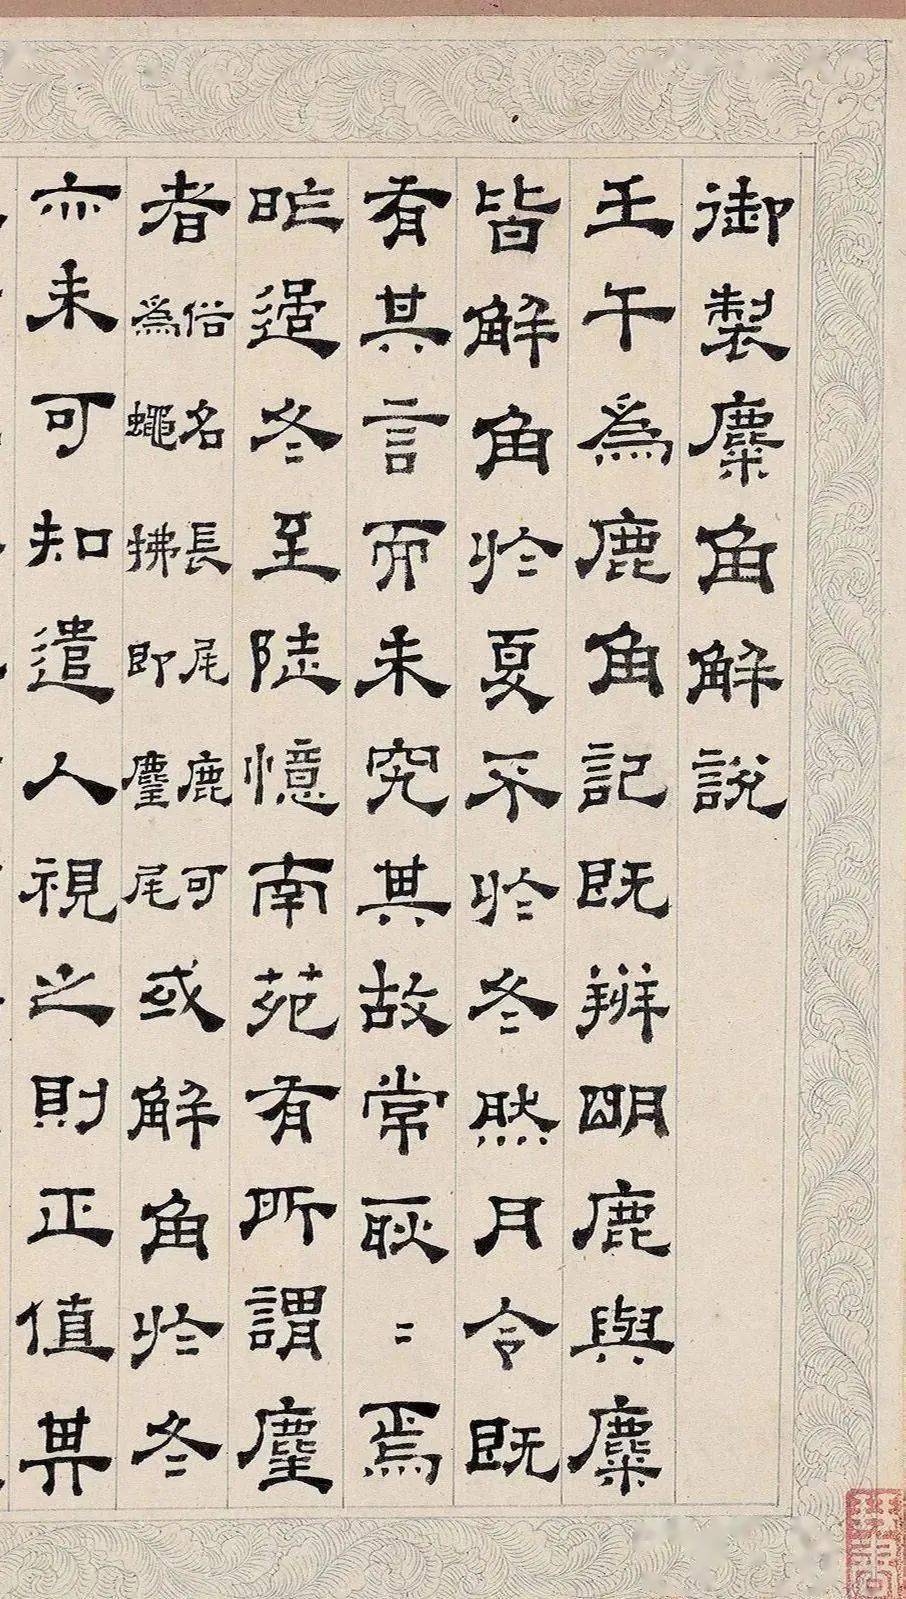 御製麋角解說
壬午爲鹿角記既辨明鹿與麋
皆解角於夏不於冬然月令既
有其言而未究其故常耿〻焉
昨過冬至陡憶南苑有所謂麈
者俗名長尾鹿可爲蠅拂即麈尾或解角於冬
亦未可知遣人視之則正值其